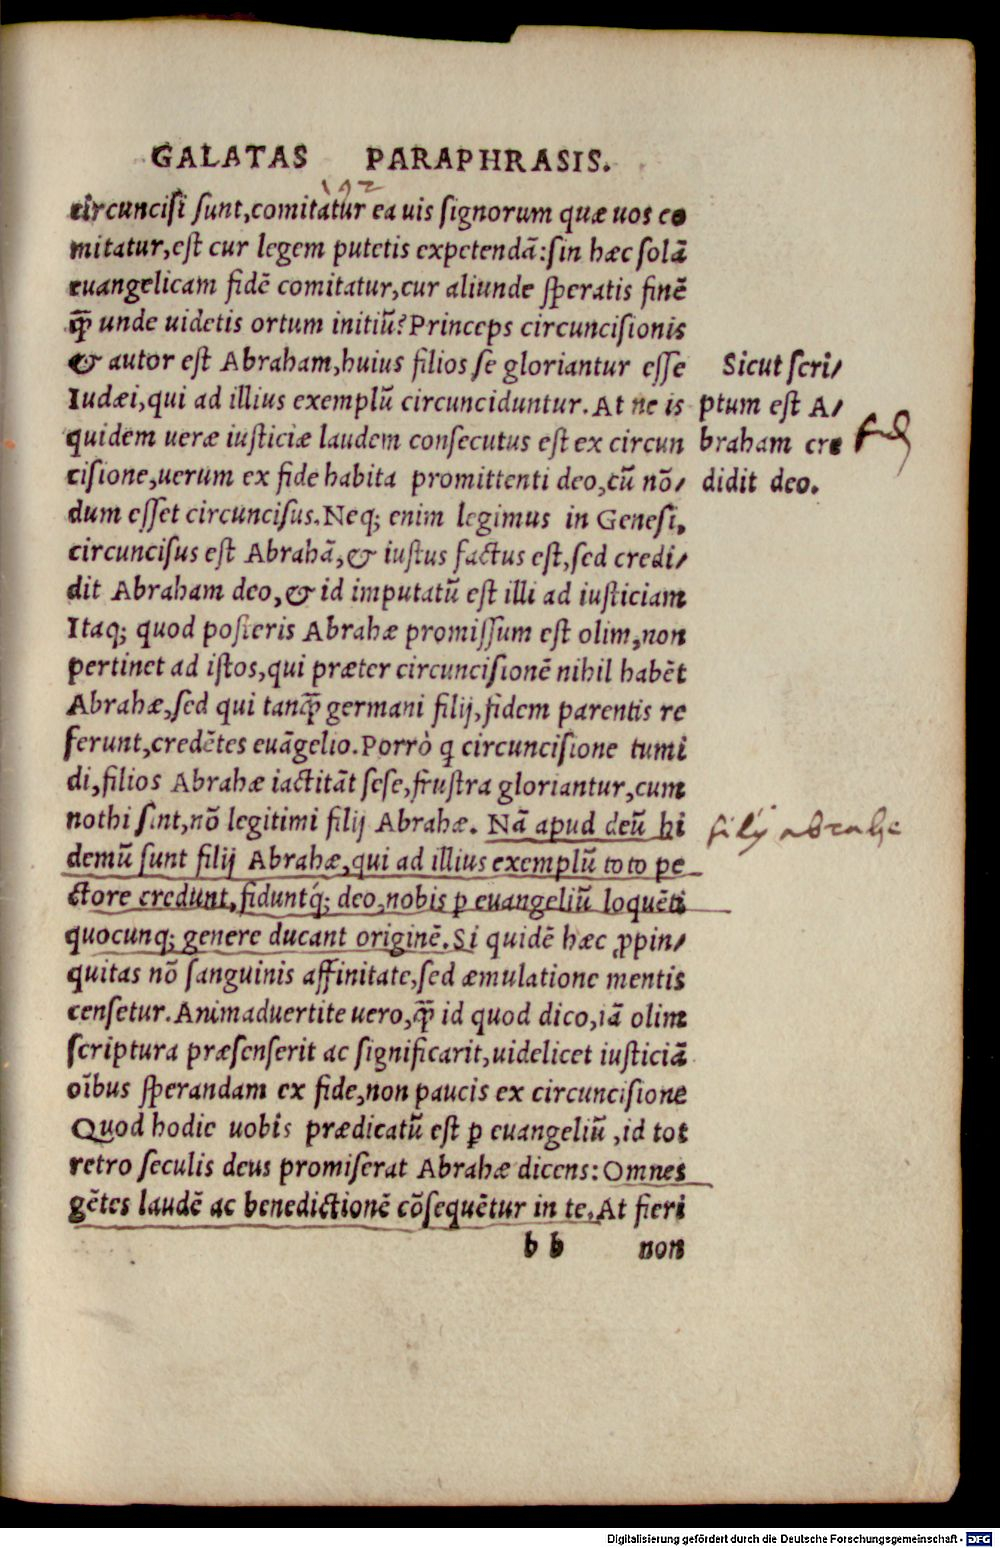 GALATAS PARAPHRASIS.
192
circuncisi sunt,comitatur ea uis signorum quæ uos co
mitatur,est cur legem putetis expetendã:sin hæc solã
euangelicam fidẽ comitatur,cur aliunde speratis finẽ
q̃ unde uidetis ortum initiũ?Princeps circuncisionis
& autor est Abraham,huius filios se gloriantur esse
Iudæi,qui ad illius exemplũ circunciduntur.At ne is
quidem ueræ iusticiæ laudem consecutus est ex circun
cisione,uerum ex fide habita promittenti deo,cũ nõ/
dum esset circuncisus.Neq; enim legimus in Genesi,
circuncisus est Abrahã,& iustus factus est,sed credi/
dit Abraham deo,& id imputatũ est illi ad iusticiam
Itaq; quod posteris Abrahæ promissum est olim,non
pertinet ad istos,qui præter circuncisionẽ nihil habẽt
Abrahæ,sed qui tanq̃ germani filij,fidem parentis re
ferunt,credẽtes euãgelio.Porrò q circuncisione tumi
di,filios Abrahæ iactitãt sese,frustra gloriantur,cum
nothi sint,nõ legitimi filij Abrahæ. Nã apud deũ hi
demũ sunt filij Abrahæ,qui ad illius exemplũ toto pe
ctore credunt,fiduntq́; deo,nobis ꝑ euangeliũ loquẽti
quocunq; genere ducant originẽ.Si quidẽ hæc ꝓpin/
quitas nõ sanguinis affinitate,sed æmulatione mentis
censetur.Animaduertite uero,q̃ id quod dico,iã olim
scriptura præsenserit ac significarit,uidelicet iusticiã
oĩbus sperandam ex fide,non paucis ex circuncisione
Quod hodie uobis prædicatũ est ꝑ euangeliũ ,id tot
retro seculis deus promiserat Abrahæ dicens:Omnes
gẽtes laudẽ ac benedictionẽ cõsequẽtur in te.At fieri
b b non
Sicut scri/
ptum est A/
braham cre
didit deo.
filij abrahe
Digitalisierung gefördert durch die Deutsche Forschungsgemeinschaft - DFG